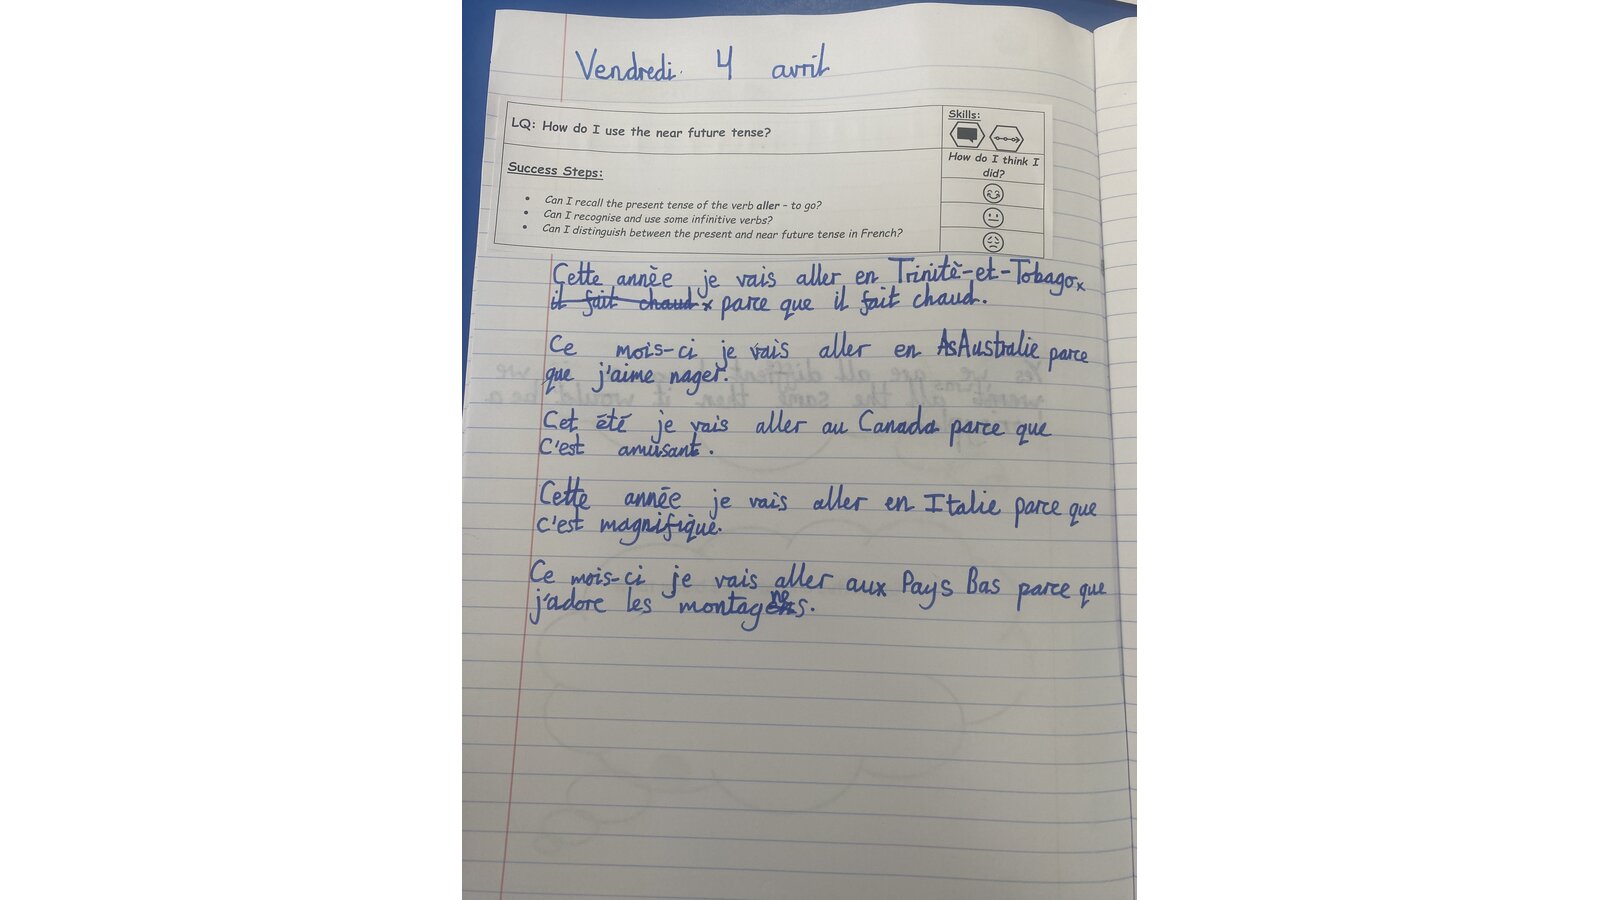 Vendredi 4 avril
LQ: How do I use the near future tense?
Skills:
How do I think I
did?
Success Steps:
• Can I recall the present tense of the verb aller - to go?
• Can I recognise and use some infinitive verbs?
• Can I distinguish between the present and near future tense in French?
Cette annèe je vais aller en Trinitè-et-Tobago x
il fait chaud x parce que il fait chaud.
Ce mois-ci je vais aller en AsAustralie parce
que j'aime nager.
Cet été je vais aller au Canada parce que
C'est amusant.
Cette année je vais aller en Italie parce que
c'est magnifique.
Ce mois-ci je vais aller aux Pays Bas parce que
j'adore les montagnes.